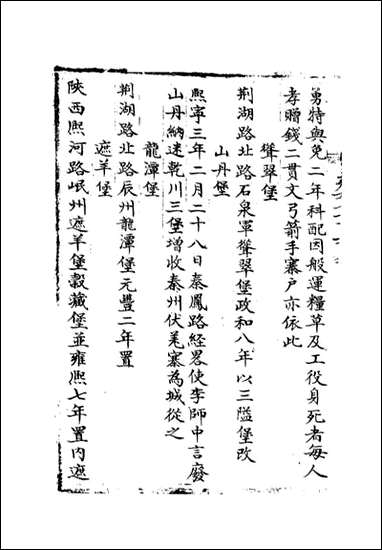 勇特與免二年科配因般運糧草及工役身死者每人
孝贈錢二貫文弓箭手寨户亦依此
聳翠堡
荆湖路北路石泉軍聳翠堡政和八年以三隘堡改
山丹堡
熙寧三年二月二十八日秦鳳路經畧使李師中言廢
山丹納迷乾川三堡增收秦州伏羌寨為城從之
龍潭堡
荆湖路北路辰州龍潭堡元豐二年置
遮羊堡
陜西熙河路岷州遮羊堡穀藏堡並雍熙七年置内遮